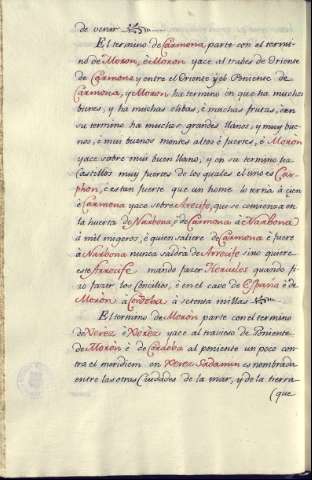 de venir
El termino de Carmona parte con el termi-
no de Moron, è Moron yace al trades de Oriente
de Carmona y entre el Oriente y el Poniente de
Carmona, y Moron ha termino en que ha muchos
bienes, y ha muchas olibas, è muchas frutas, è en
su termino ha muchos grandes llanos, y muy bue-
nos, è mui buenos montes altos è fuertes, è Moron
yace sobre mui buen llano, y en su termino ha
Castellos muy fuertes de los quales el uno es Car-
phon, è es tan fuerte que un home lo terná à cien
è Carmona yace sobre Arrecife, que se comienza en
la huerta de Narbona, è de Carmona à Narbona
à mil migeros, è quien saliere de Carmona è fuere
à Narbona nunca saldrá de Arrecife sino quiere
este Arrecife mandò facer Hercules quando fi-
zo fazer los Concilios, è en el caso de España è de
Moròn à Còrdoba à setenta millas
El termino de Moròn parte con el termino
de Xerez è Xerèz yace al traveso de Poniente
de Moròn è de Còrdoba al poniente un poco con-
tra el meridien, en Xerez Sadamin es nombrada
entre las otras Ciudades de la mar, y de la tierra
(que